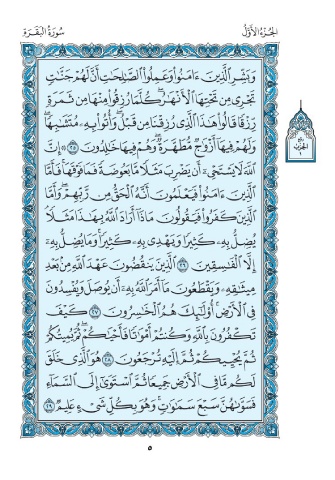 الجُزْءُ الأَوَّلُ
سُورَةُ البَقَرَةِ
وَبَشِّرِ الَّذِينَ ءَامَنُوا وَعَمِلُوا الصَّٰلِحَٰتِ أَنَّ لَهُمْ جَنَّٰتٍ
تَجْرِي مِن تَحْتِهَا الْأَنْهَٰرُ كُلَّمَا رُزِقُوا مِنْهَا مِن ثَمَرَةٍ
رِّزْقًا قَالُوا هَٰذَا الَّذِي رُزِقْنَا مِن قَبْلُ وَأُتُوا بِهِ مُتَشَٰبِهًا
وَلَهُمْ فِيهَا أَزْوَٰجٌ مُّطَهَّرَةٌ وَهُمْ فِيهَا خَٰلِدُونَ ٢٥ ۞ إِنَّ
اللَّهَ لَا يَسْتَحْيِ أَن يَضْرِبَ مَثَلًا مَّا بَعُوضَةً فَمَا فَوْقَهَا فَأَمَّا
الَّذِينَ ءَامَنُوا فَيَعْلَمُونَ أَنَّهُ الْحَقُّ مِن رَّبِّهِمْ وَأَمَّا
الَّذِينَ كَفَرُوا فَيَقُولُونَ مَاذَا أَرَادَ اللَّهُ بِهَٰذَا مَثَلًا
يُضِلُّ بِهِ كَثِيرًا وَيَهْدِي بِهِ كَثِيرًا وَمَا يُضِلُّ بِهِ
إِلَّا الْفَٰسِقِينَ ٢٦ الَّذِينَ يَنقُضُونَ عَهْدَ اللَّهِ مِن بَعْدِ
مِيثَٰقِهِ وَيَقْطَعُونَ مَا أَمَرَ اللَّهُ بِهِ أَن يُوصَلَ وَيُفْسِدُونَ
فِي الْأَرْضِ أُولَٰئِكَ هُمُ الْخَٰسِرُونَ ٢٧ كَيْفَ
تَكْفُرُونَ بِاللَّهِ وَكُنتُمْ أَمْوَٰتًا فَأَحْيَٰكُمْ ثُمَّ يُمِيتُكُمْ
ثُمَّ يُحْيِيكُمْ ثُمَّ إِلَيْهِ تُرْجَعُونَ ٢٨ هُوَ الَّذِي خَلَقَ
لَكُم مَّا فِي الْأَرْضِ جَمِيعًا ثُمَّ اسْتَوَىٰ إِلَى السَّمَاءِ
فَسَوَّىٰهُنَّ سَبْعَ سَمَٰوَٰتٍ وَهُوَ بِكُلِّ شَيْءٍ عَلِيمٌ ٢٩
٥